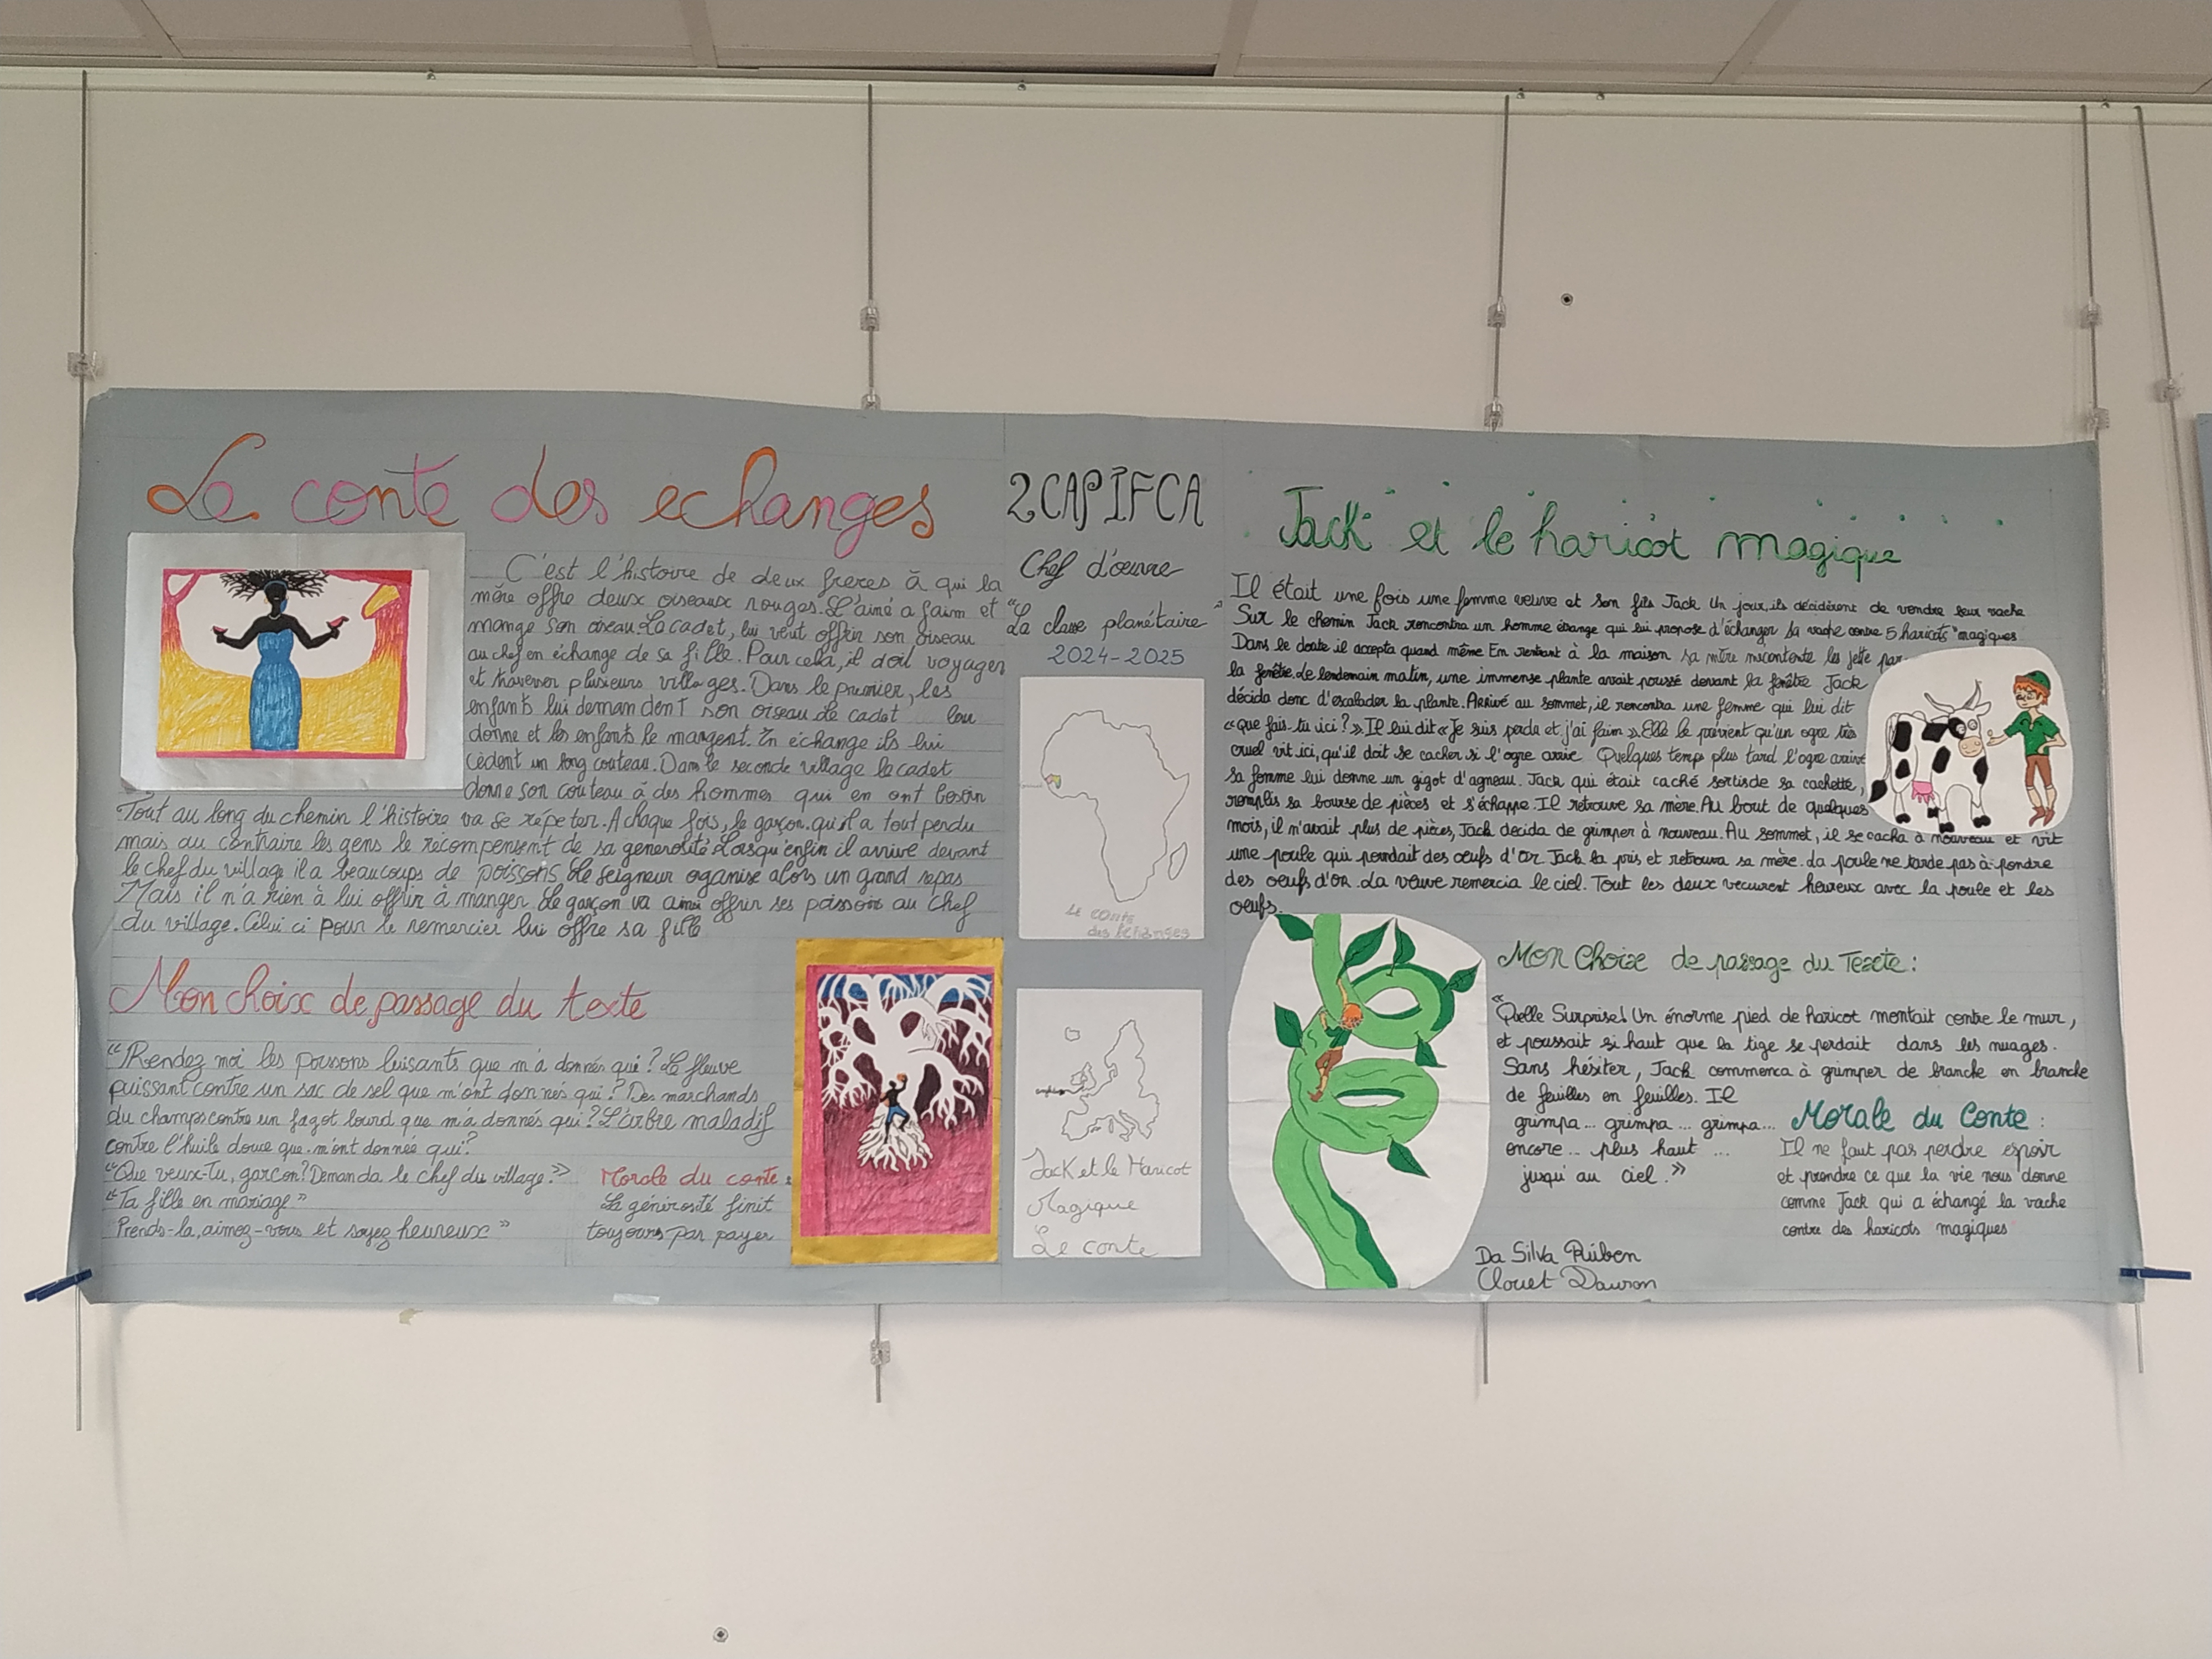 Le conte des echanges
C'est l'histoire de deux freres à qui la
mère offre deux oiseaux rouges. L'ainé a faim et
mange son oiseau. La cadet, lui veut offrir son oiseau
au chef en échange de sa fille. Pour cela, il doit voyager
et traverser plusieurs villages. Dans le premier, les
enfants lui demandent son oiseau le cadet leur
donne et les enfants le mangent. En échange ils lui
cèdent un long couteau. Dans le seconde village le cadet
donne son couteau à des hommes qui en ont besoin
Tout au long du chemin l'histoire va se répeter. A chaque fois, le garçon qu'il a tout perdu
mais au contraire les gens le récompensent de sa generosité. Lorsqu'enfin il arrive devant
le chef du village il a beaucoups de poissons. Le seigneur oganise alors un grand repas
Mais il n'a rien à lui offrir à manger. Le garçon va ainsi offrir ses poisson au chef
du village. Celui ci pour le remercier lui offre sa fille
Mon choix de passage du texte
"Rendez moi les poissons luisants que m'a donnés qui? Le fleuve
puissant contre un sac de sel que m'ont donnés qui? Des marchands
du champs contre un fagot lourd que m'a donnés qui? L'arbre maladif
contre l'huile douce que m'ont donnée qui?
"Que veux-tu, garçon? Demanda le chef du village."
"Ta fille en mariage"
Prends-la, aimez-vous et soyez heureux"
Morale du conte :
La générosité finit
toujours par payer
2CAPIFCA
Chef d'œuvre
"La classe planétaire"
2024-2025
Le conte
des échanges
Jack et le Haricot
Magique
Le conte
Jack et le haricot magique
Il était une fois une femme veuve et son fils Jack Un jour, ils décidèrent de vendre leur vache
Sur le chemin Jack rencontra un homme étrange qui lui propose d'échanger sa vache contre 5 haricots "magiques
Dans le doute il accepta quand même En rentrant à la maison sa mère mecontente les jette par
la fenêtre. Le lendemain matin, une immense plante avait poussé devant la fenêtre Jack
décida donc d'escalader la plante. Arrivé au sommet, il rencontra une femme qui lui dit
«Que fais-tu ici?» Il lui dit «Je suis perdu et j'ai faim». Elle le prévient qu'un ogre très
cruel vit ici, qu'il doit se cacher si l'ogre arrive Quelques temps plus tard l'ogre arrive
sa femme lui donne un gigot d'agneau. Jack qui était caché sortis de sa cachette,
remplis sa bourse de pièces et s'échappe. Il retrouve sa mère. Au bout de quelques
mois, il n'avait plus de pièces, Jack decida de grimper à nouveau. Au sommet, il se cacha à nouveau et vit
une poule qui pondait des œufs d'or Jack la pris et retrouva sa mère. La poule ne tarde pas à pondre
des oeufs d'or. La veuve remercia le ciel. Tout les deux vecurent heureux avec la poule et les
oeufs.
Mon Choix de passage du Texte :
"Quelle Surprise! Un énorme pied de haricot montait contre le mur,
et poussait si haut que la tige se perdait dans les nuages.
Sans hésiter, Jack commenca à grimper de branche en branche
de feuilles en feuilles. Il
grimpa... grimpa... grimpa...
encore... plus haut ...
jusqu'au ciel."
Morale du Conte :
Il ne faut pas perdre espoir
et prendre ce que la vie nous donne
comme Jack qui a échangé la vache
contre des haricots magiques
Da Silva Rúben
Clouet Dawson